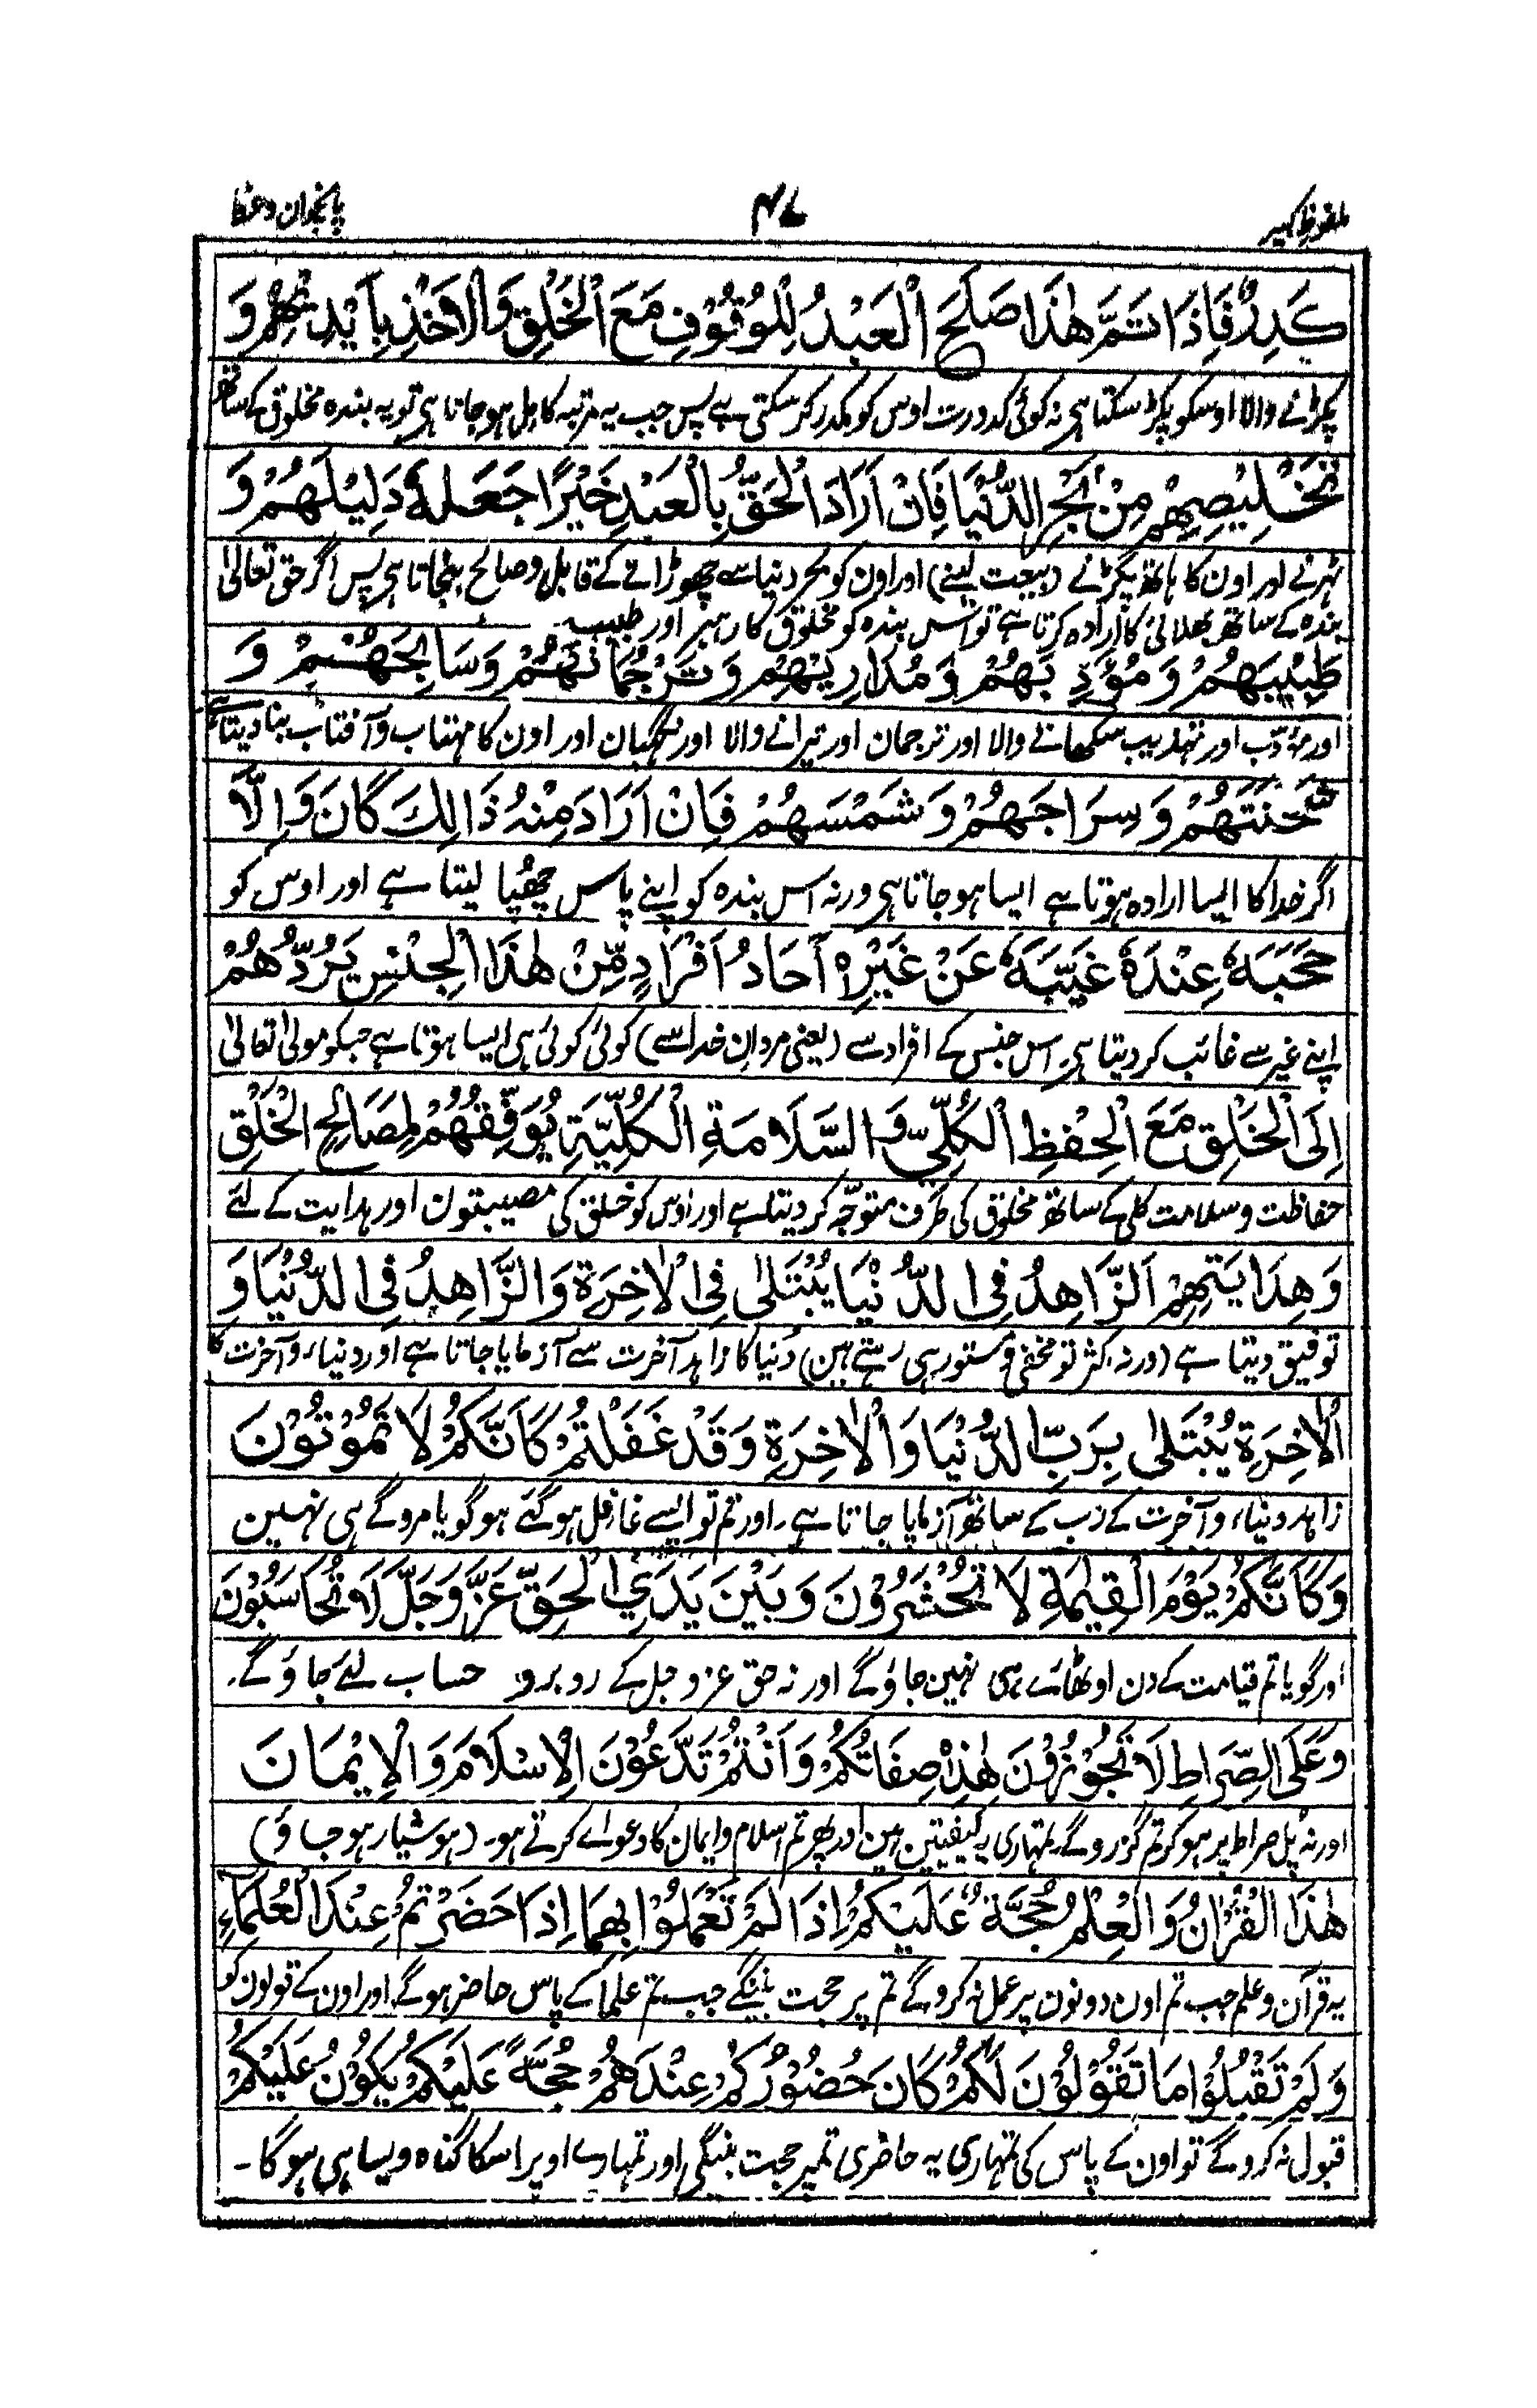 ملفوظ کبیر
۴۷
پانچواں وعظ
كَدِرٌ فَاِذَا تَمَّ هٰذَا صَلَحَ الْعَبْدُ لِلْوُقُوْفِ مَعَ الْخَلْقِ وَالْاَخْذِ بِاَيْدِيْهِمْ وَ
پکڑانے والا اوسکو پکڑ سکتا ہی نہ کوئی کدورت اوس کو مکدر کر سکتی ہے پس جب یہ مرتبہ کامل ہو جاتا ہی تو یہ بندہ مخلوق کے ساتھ
تَخْلِيْصِهِمْ مِنْ بَحْرِ الدُّنْيَا فَاِنْ اَرَادَ الْحَقُّ بِالْعَبْدِ خَيْرًا جَعَلَهٗ دَلِيْلَهُمْ وَ
ٹہرنے اور اون کا ہاتھ پکڑنے (بیعت لینے) اور اون کو بحر دنیا سے چھوڑانے کے قابل و صالح بنجاتا ہی پس اگر حق تعالیٰ
بندہ کے ساتھ بھلائی کا ارادہ کرتا ہے تو اس بندہ کو مخلوق کا رہبر اور طبیب
طَبِيْبَهُمْ وَمُؤَدِّبَهُمْ وَمُدَارِيْهِمْ وَتَرْجُمَانَهُمْ وَسَابِحَهُمْ وَ
اور مؤدّب اور تہذیب سکھانے والا اور ترجمان اور تیرانے والا اور نگہبان اور اون کا مہتاب و آفتاب بنا دیتا ہے
شَحْنَتَهُمْ وَسِرَاجَهُمْ وَشَمْسَهُمْ فَاِنْ اَرَادَ مِنْهُ ذَالِكَ كَانَ وَاِلَّا
اگر خدا کا ایسا ارادہ ہوتا ہے ایسا ہو جاتا ہی ورنہ اس بندہ کو اپنے پاس چھپا لیتا ہے اور اوس کو
حَجَبَهٗ عِنْدَهٗ غَيَّبَهٗ عَنْ غَيْرِهٖ اٰحَادُ اَفْرَادٍ مِّنْ هٰذَا الْجِنْسِ يَرُدُّهُمْ
اپنے غیر سے غائب کر دیتا ہی۔ اس جنس کے افراد سے (یعنی مردان خدا سے) کوئی کوئی ہی ایسا ہوتا ہے جبکو مولیٰ تعالیٰ
اِلَى الْخَلْقِ مَعَ الْحِفْظِ الْكُلِّيِّ وَ السَّلَامَةِ الْكُلِّيَّةِ يُوَفِّقُهُمْ لِمَصَالِحِ الْخَلْقِ
حفاظت و سلامت کلی کے ساتھ مخلوق کی طرف متوجّہ کر دیتا ہے اور اوس کو خلق کی مصیبتون اور ہدایت کے لئے
وَهِدَايَتِهِمْ اَلزَّاهِدُ فِى الدُّنْيَا يُبْتَلٰى فِى الْاٰخِرَةِ وَالزَّاهِدُ فِى الدُّنْيَا وَ
توفیق دیتا ہے (ورنہ اکثر تو مخفی و مستور ہی رہتے ہین) دُنیا کا زاہد آخرت سے آزمایا جاتا ہے اور دنیا، و آخرت کا
الْاٰخِرَةِ يُبْتَلٰى بِرَبِّ الدُّنْيَا وَالْاٰخِرَةِ وَقَدْ غَفَلْتُمْ كَاَنَّكُمْ لَا تَمُوْتُوْنَ
زاہد دنیا، و آخرت کے رب کے ساتھ آزمایا جاتا ہے۔ اور تم تو ایسے غافل ہو گئے ہو گویا مروگے ہی نہین
وَكَاَنَّكُمْ يَوْمَ الْقِيٰمَةِ لَا تُحْشَرُوْنَ وَبَيْنَ يَدَيِ الْحَقِّ عَزَّ وَجَلَّ لَا تُحَاسَبُوْنَ
اور گویا تم قیامت کے دن اوٹھائے ہی نہین جاؤگے اور نہ حق عزوجل کے روبرو حساب لئے جاؤگے۔
وَعَلَى الصِّرَاطِ لَا تَجُوْزُوْنَ هٰذِهٖ صِفَاتُكُمْ وَاَنْتُمْ تَدَّعُوْنَ الْاِسْلَامَ وَالْاِيْمَانَ
اور نہ پل صراط پر ہو کر تم گزروگے۔ تمہاری یہ کیفیتین ہین اور پھر تم اسلام و ایمان کا دعواے کرتے ہو۔ (ہوشیار ہو جاؤ)
هٰذَا الْقُرْاٰنُ وَالْعِلْمُ حُجَّةٌ عَلَيْكُمْ اِذَا لَمْ تَعْمَلُوْا بِهِمَا اِذَا حَضَرْتُمْ عِنْدَ الْعُلَمَاءِ
یہ قرآن و علم جب تم اون دونون پر عمل نہ کروگے تم پر حجت بنینگے جب تم علما کے پاس حاضر ہوگے اور اون کے قولون کو
وَلَمْ تَقْبَلُوْا مَا تَقُوْلُوْنَ لَكُمْ كَانَ حُضُوْرُكُمْ عِنْدَهُمْ حُجَّةً عَلَيْكُمْ يَكُوْنُ عَلَيْكُمْ
قبول نہ کروگے تو اون کے پاس کی تمہاری یہ حاضری تمپر حجت بنیگی اور تمہارے اوپر اسکا گناہ ویسا ہی ہوگا۔